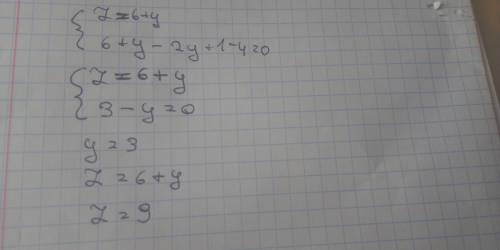 z = 6 + y
6 + y - 2y + 1 - 4 = 0
z = 6 + y
3 - y = 0
y = 3
z = 6 + y
z = 9